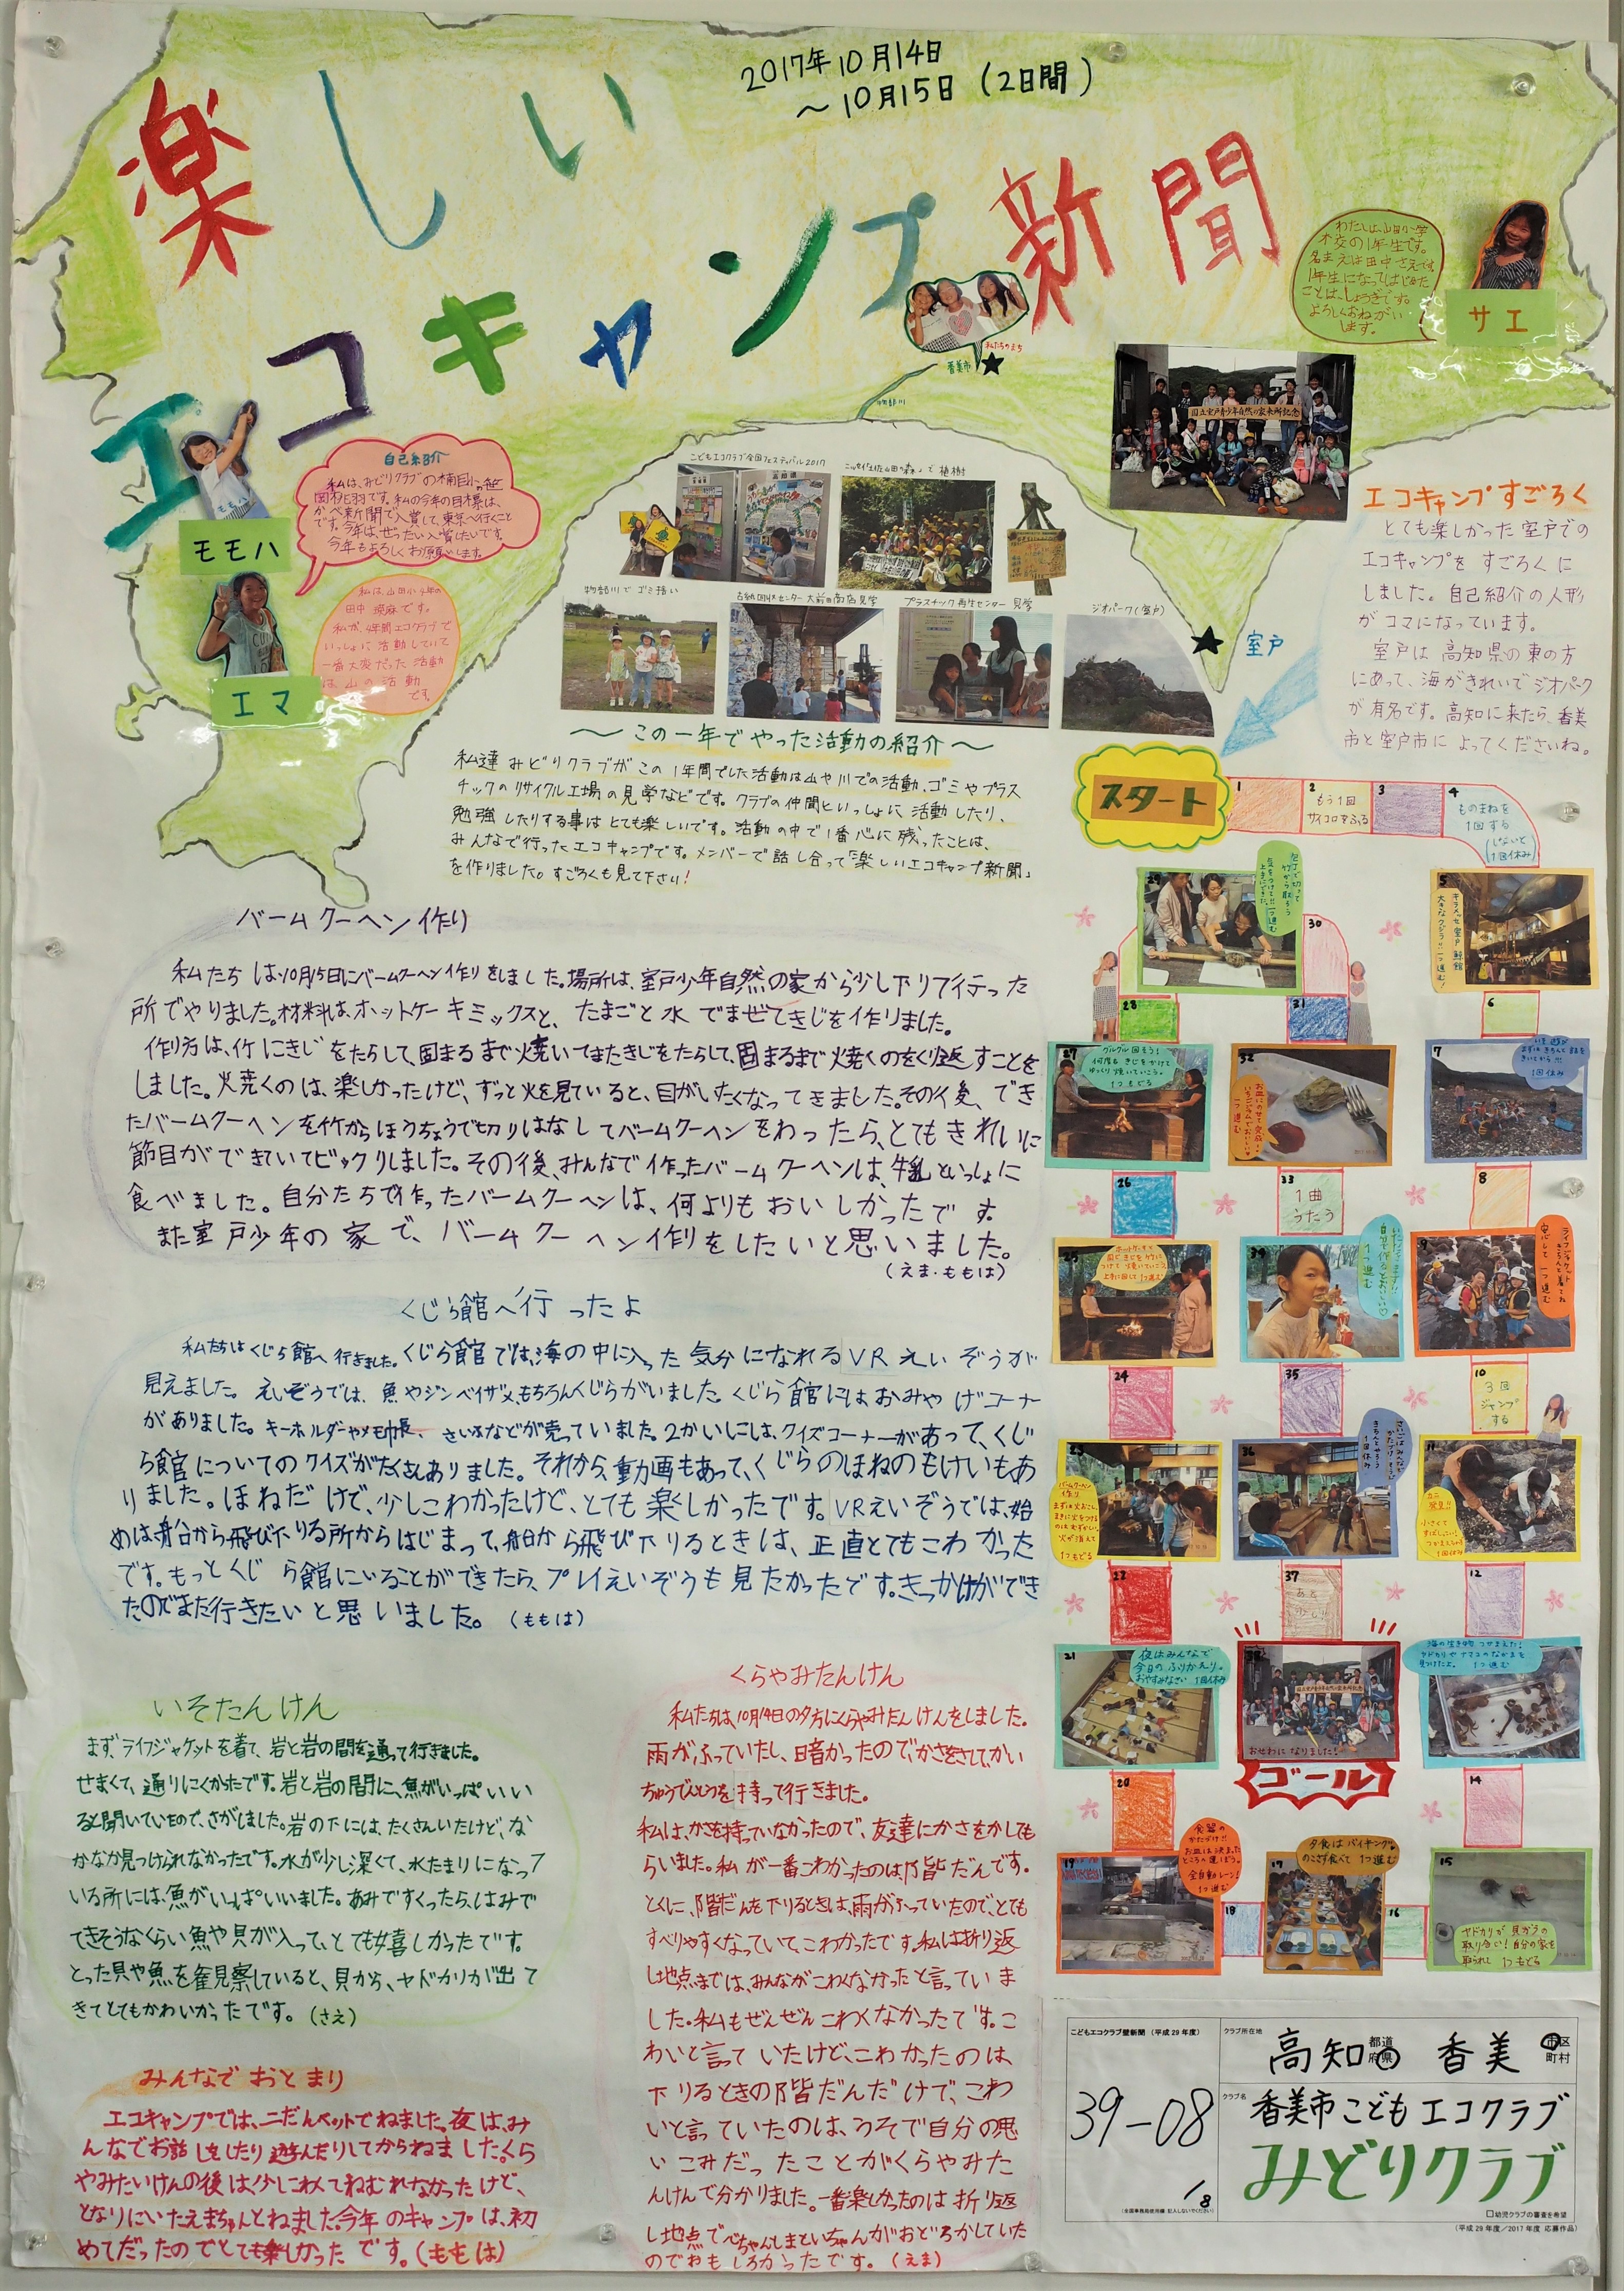 2017年10月14日
～10月15日（2日間）
楽しい
エコキャンプ新聞
わたしは、山田小学
校の1年生です。
名まえは田中さえです。
1年生になってはじめた
ことは、しょうぎです。
よろしくおねがい
します。
サエ
私たちのまち
香美市
物部川
自己紹介
モモハ
私は、山田小4年の
私が、4年間エコクラブで
いっしょに活動していて
一番大変だった活動
は、山の活動
です。
エマ
こどもエコクラブ全国フェスティバル2017
国立室戸青少年自然の家来所記念
物部川でゴミ拾い
プラスチック再生センター見学
ジオパーク（室戸）
室戸
エコキャンプすごろく
とても楽しかった室戸での
エコキャンプをすごろくに
しました。自己紹介の人形
がコマになっています。
室戸は高知県の東の方
にあって、海がきれいでジオパーク
が有名です。高知に来たら、香美
市と室戸市によってくださいね。
～この一年でやった活動の紹介～
私達みどりクラブがこの1年間でした活動は山や川での活動、ゴミやプラス
チックのリサイクル工場の見学などです。クラブの仲間といっしょに活動したり、
勉強したりする事はとても楽しいです。活動の中で1番心に残ったことは、
みんなで行ったエコキャンプです。メンバーで話し合って「楽しいエコキャンプ新聞」
を作りました。すごろくも見て下さい！
バームクーヘン作り
私たちは10月15日にバームクーヘン作りをしました。場所は、室戸少年自然の家から少し下りて行った
所でやりました。材料は、ホットケーキミックスと、たまごと水でまぜてきじを作りました。
作り方は、竹にきじをたらして、固まるまで焼いてまたきじをたらして、固まるまで焼くのをくり返すことを
しました。焼くのは、楽しかったけど、ずっと火を見ていると、目がいたくなってきました。その後、でき
たバームクーヘンを竹からほうちょうで切りはなしてバームクーヘンをわったら、とてもきれいに
節目ができていてビックリしました。その後、みんなで作ったバームクーヘンは、牛乳といっしょに
食べました。自分たちで作ったバームクーヘンは、何よりもおいしかったです。
また室戸少年の家で、バームクーヘン作りをしたいと思いました。
（えま・ももは）
くじら館へ行ったよ
私たちはくじら館へ行きました。くじら館では、海の中に入った気分になれるVRえいぞうが
見えました。えいぞうでは、魚やジンベイザメ、もちろんくじらがいました。くじら館にはおみやげコーナー
がありました。キーホルダーやメモ帳、さいふなどが売っていました。2かいには、クイズコーナーがあって、くじ
ら館についてのクイズがたくさんありました。それから、動画もあって、くじらのほねのもけいもあ
りました。ほねだけで、少しこわかったけど、とても楽しかったです。VRえいぞうでは、始
めは、船から飛び下りる所からはじまって、船から飛び下りるときは、正直とてもこわかった
です。もっとくじら館にいることができたら、プレイえいぞうも見たかったです。きっかけができ
たのでまた行きたいと思いました。（ももは）
いそたんけん
まず、ライフジャケットを着て、岩と岩の間を通って行きました。
せまくて、通りにくかったです。岩と岩の間に、魚がいっぱいい
ると聞いていたので、さがしました。岩の下には、たくさんいたけど、な
かなか見つけられなかったです。水が少し深くて、水たまりになって
いる所には、魚がいっぱいいました。あみですくったら、はみで
てきそうなくらい魚や貝が入って、とても嬉しかったです。
とった貝や魚を観察していると、貝から、ヤドカリが出て
きてとてもかわいかったです。（さえ）
みんなでおとまり
エコキャンプでは、二だんベットでねました。夜は、み
んなでお話しをしたり遊んだりしてからねました。くら
やみたいけんの後は少しこわくてねむれなかったけど、
となりにいたえまちゃんとねました。今年のキャンプは、初
めてだったのでとても楽しかったです。（ももは）
くらやみたんけん
私たちは、10月14日の夕方にくらやみたんけんをしました。
雨がふっていたし、暗かったので、かさをさして、かい
ちゅうでんとうを持って行きました。
私は、かさを持っていなかったので、友達にかさをかしても
らいました。私が一番こわかったのは、階だんです。
とくに、階だんを下りるときは、雨がふっていたので、とても
すべりやすくなっていて、こわかったです。私は折り返
し地点までは、みんながこわくなかったと言っていま
した。私もぜんぜんこわくなかったです。こ
わいと言っていたけど、こわかったのは、
下りるときの階だんだけで、こわ
いと言っていたのは、うそで自分の思
いこみだったことがくらやみた
んけんで分かりました。一番楽しかったのは折り返
のでおもしろかったです。（えま）
スタート
1
2
もう1回
サイコロをふる
3
4
ものまねを
1回する
（しないと
1回休み）
5
6
7
1回休み
8
9
ライフジャケット
きちんと着てね
安心して1つ進む
10
3回
ジャンプ
する
11
カニ
発見!!
12
海の生き物つかまえた！
ヤドカリやナマコのなかまを
見つけたよ。1つ進む
14
15
ヤドカリが貝がらの
取り合い！自分の家を
取られて1つもどる
16
17
夕食はバイキング。
のこさず食べて1つ進む
18
19
食器の
かたづけ!!
お皿は決まった
ところへ運ぼう。
全自動レーン！
1つ進む
20
21
夜はみんなで
今日のふりかえり。
おやすみなさい 1回休み
23
23
バームクーヘン
作り
まずは火おこし。
火が消えて
1つもどる
24
25
26
27
グルグル回そう！
何度もきじをかけて
ゆっくり焼いていこう。
1つもどる
28
29
30
31
32
33
1曲
うたう
34
35
36
37
あと
少し!!
38
国立室戸青少年自然の家来所記念
おせわになりました！
ゴール
こどもエコクラブ壁新聞（平成29年度）
39-08
クラブ所在地
高知 都道府県 香美 市区町村
クラブ名
香美市こどもエコクラブ
みどりクラブ
□幼児クラブの審査を希望
（平成29年度／2017年度 応募作品）